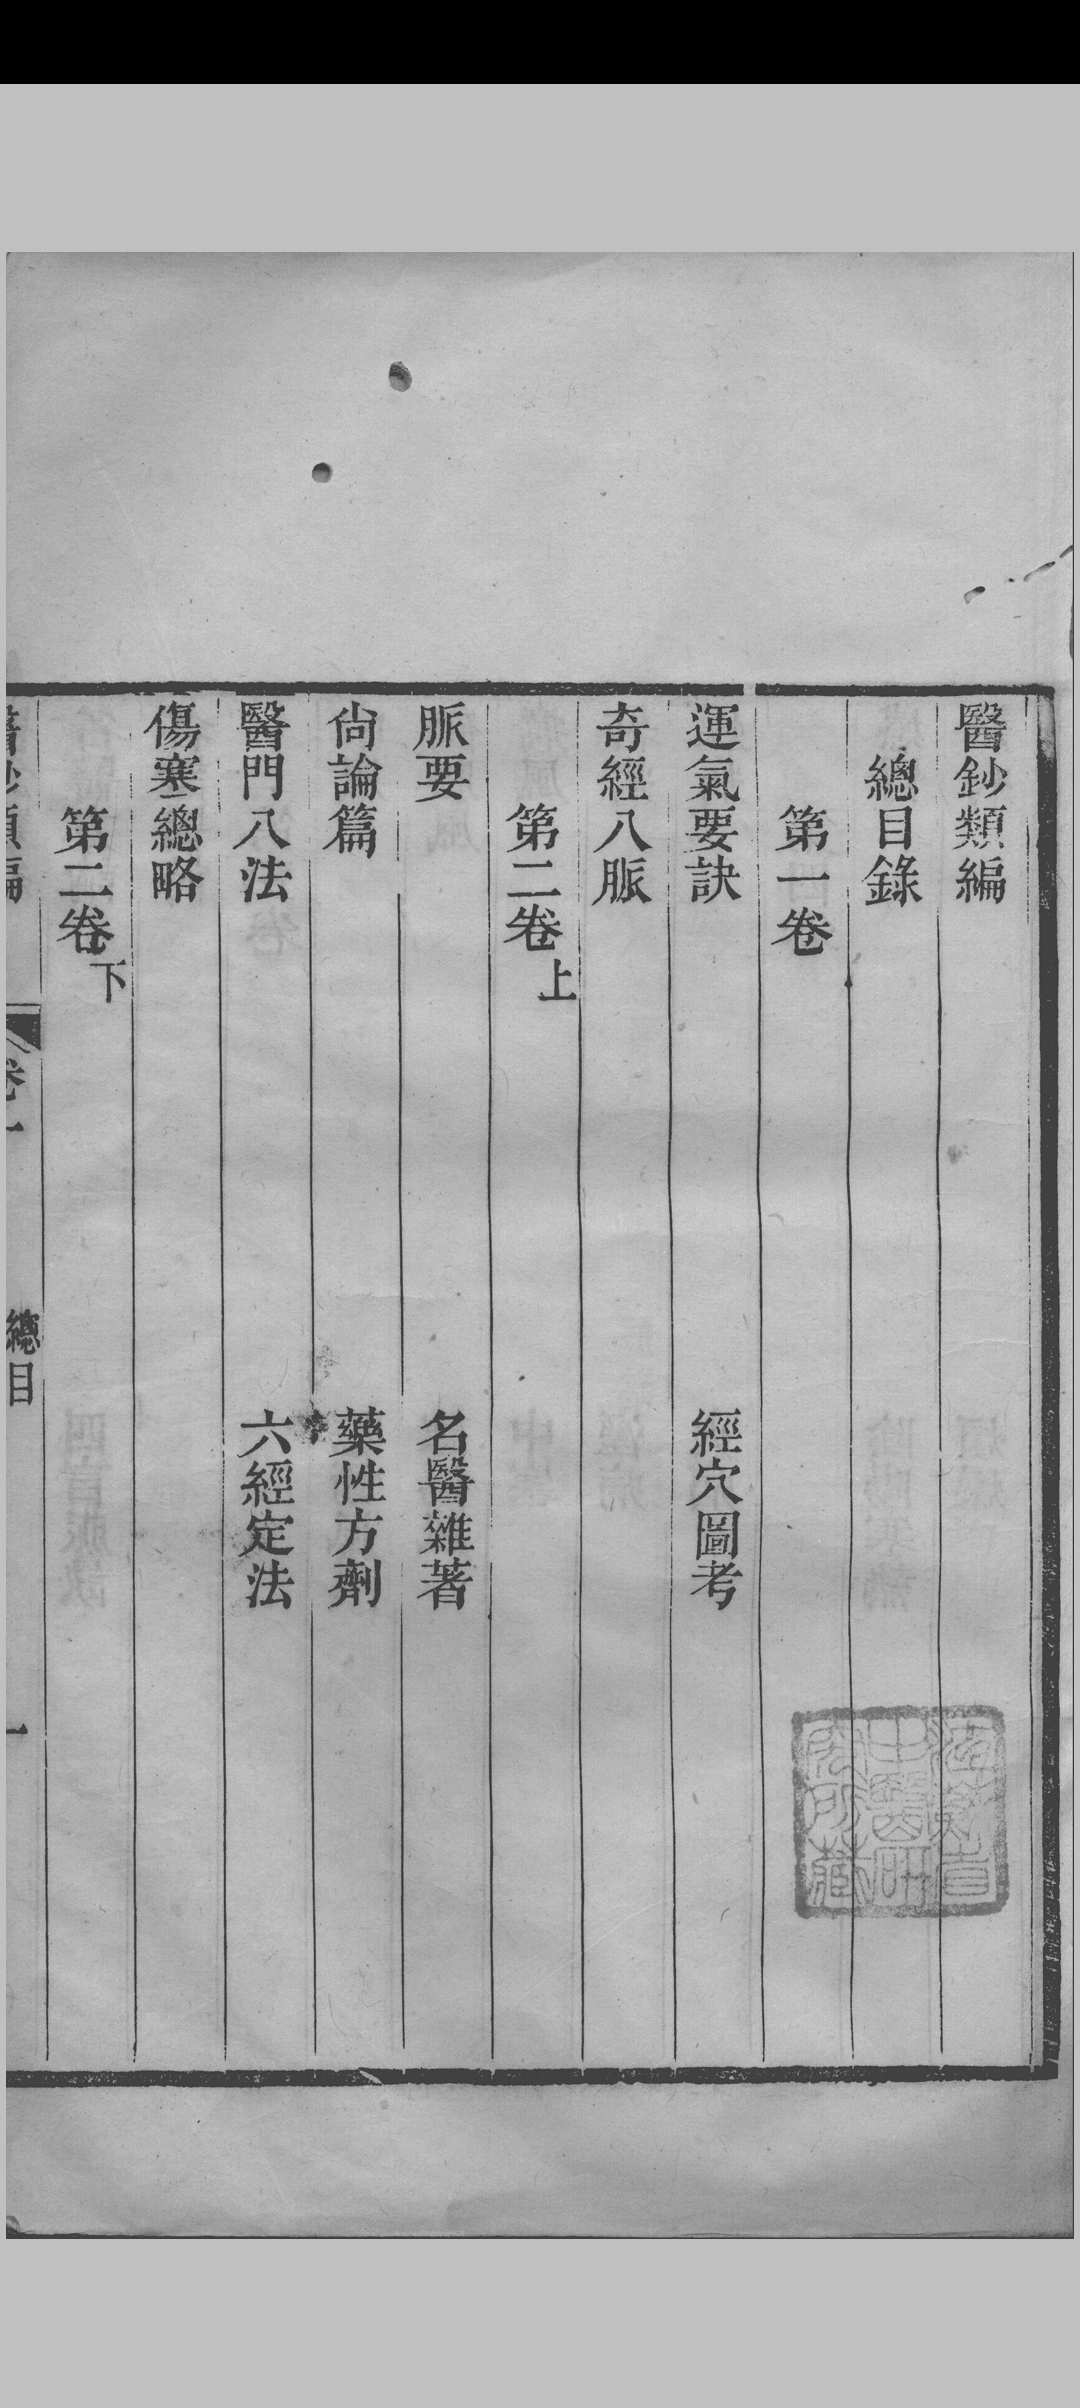 醫鈔類編
總目錄
第一卷
運氣要訣
經穴圖考
奇經八脈
第二卷上
脈要
名醫雜著
尙論篇
藥性方劑
醫門八法
六經定法
傷寒總略
第二卷下
醫鈔類編
卷一
總目
一
中醫研
院所藏